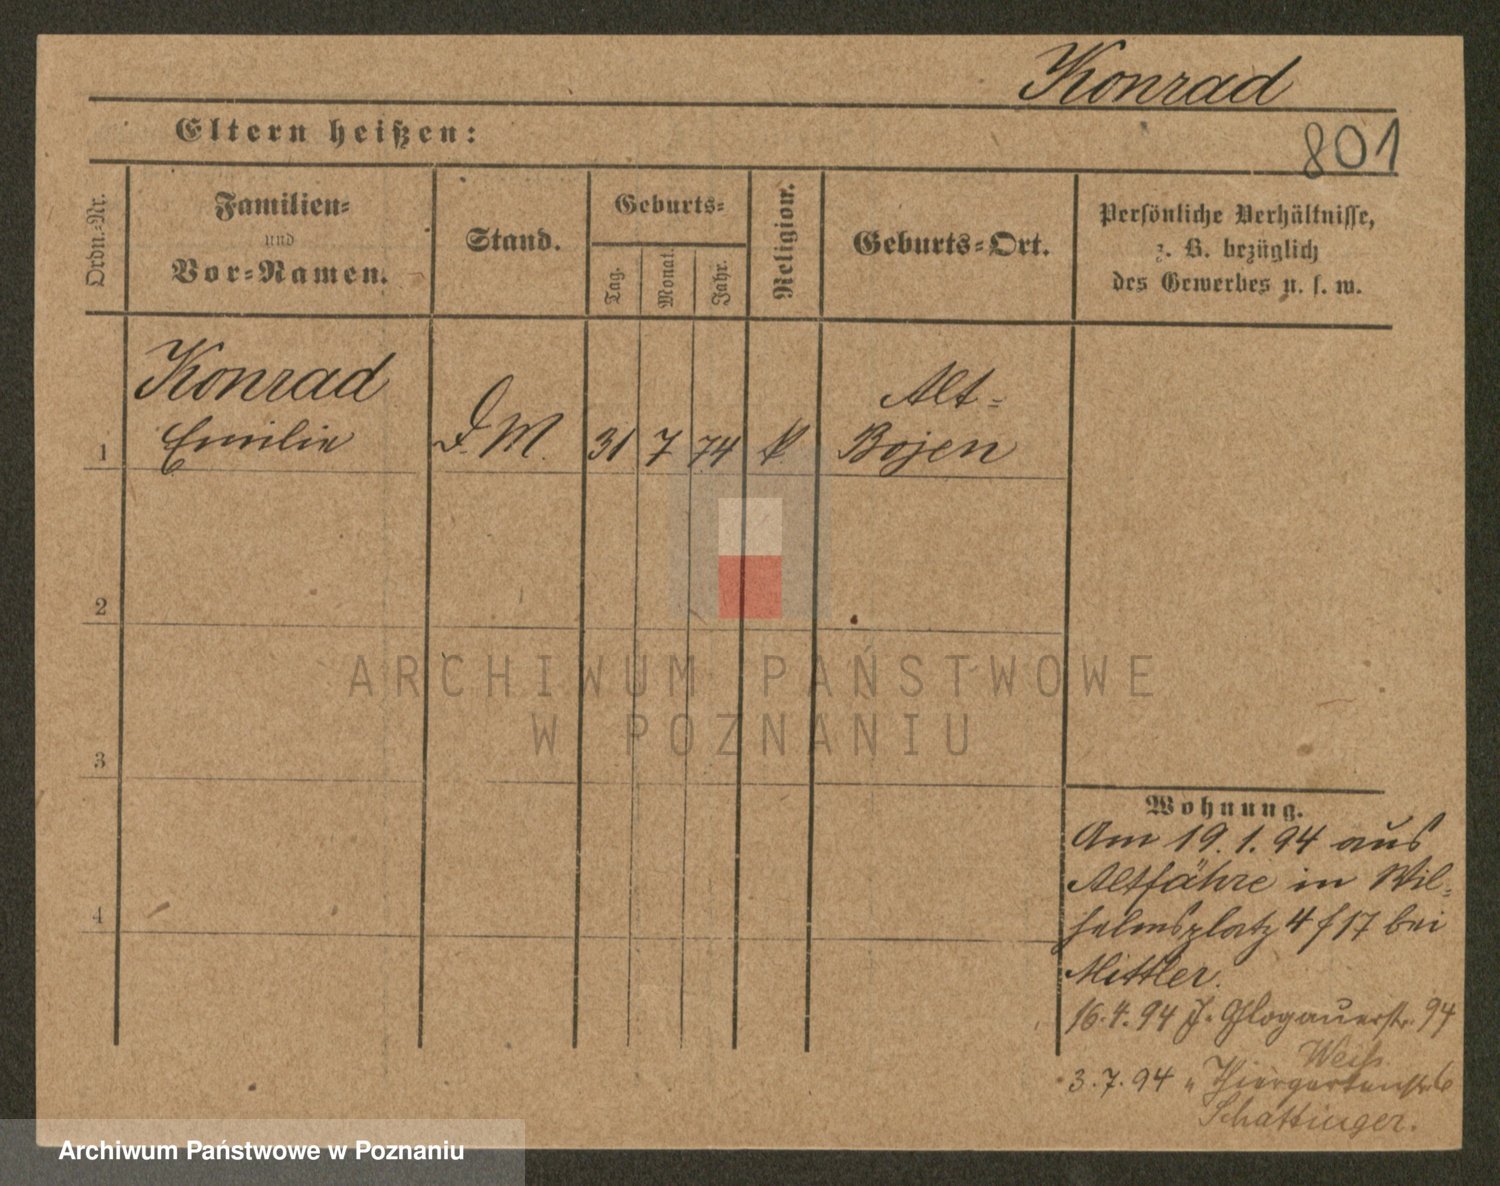 Konrad
Eltern heißen:
801
Ordn.-Nr.
Familien-
und
Vor-Namen.
Stand.
Geburts-
Tag.
Monat.
Jahr.
Religion.
Geburts-Ort.
Persönliche Verhältnisse,
z. B. bezüglich
des Gewerbes u. s. w.
Konrad
Alt-
1 Emilie D. M. 31 7 74 k. Bojen
2
ARCHIWUM PAŃSTWOWE
W POZNANIU
3
Wohnung.
Am 19. 1. 94 aus
Altfähre in Wil-
helmsplatz 4 f 17 bei
Mittler.
16. 4. 94 J. Glogauerstr. 94
Weiß.
3. 7. 94 " Thiergartenstr 6
Schattinger.
4
Archiwum Państwowe w Poznaniu